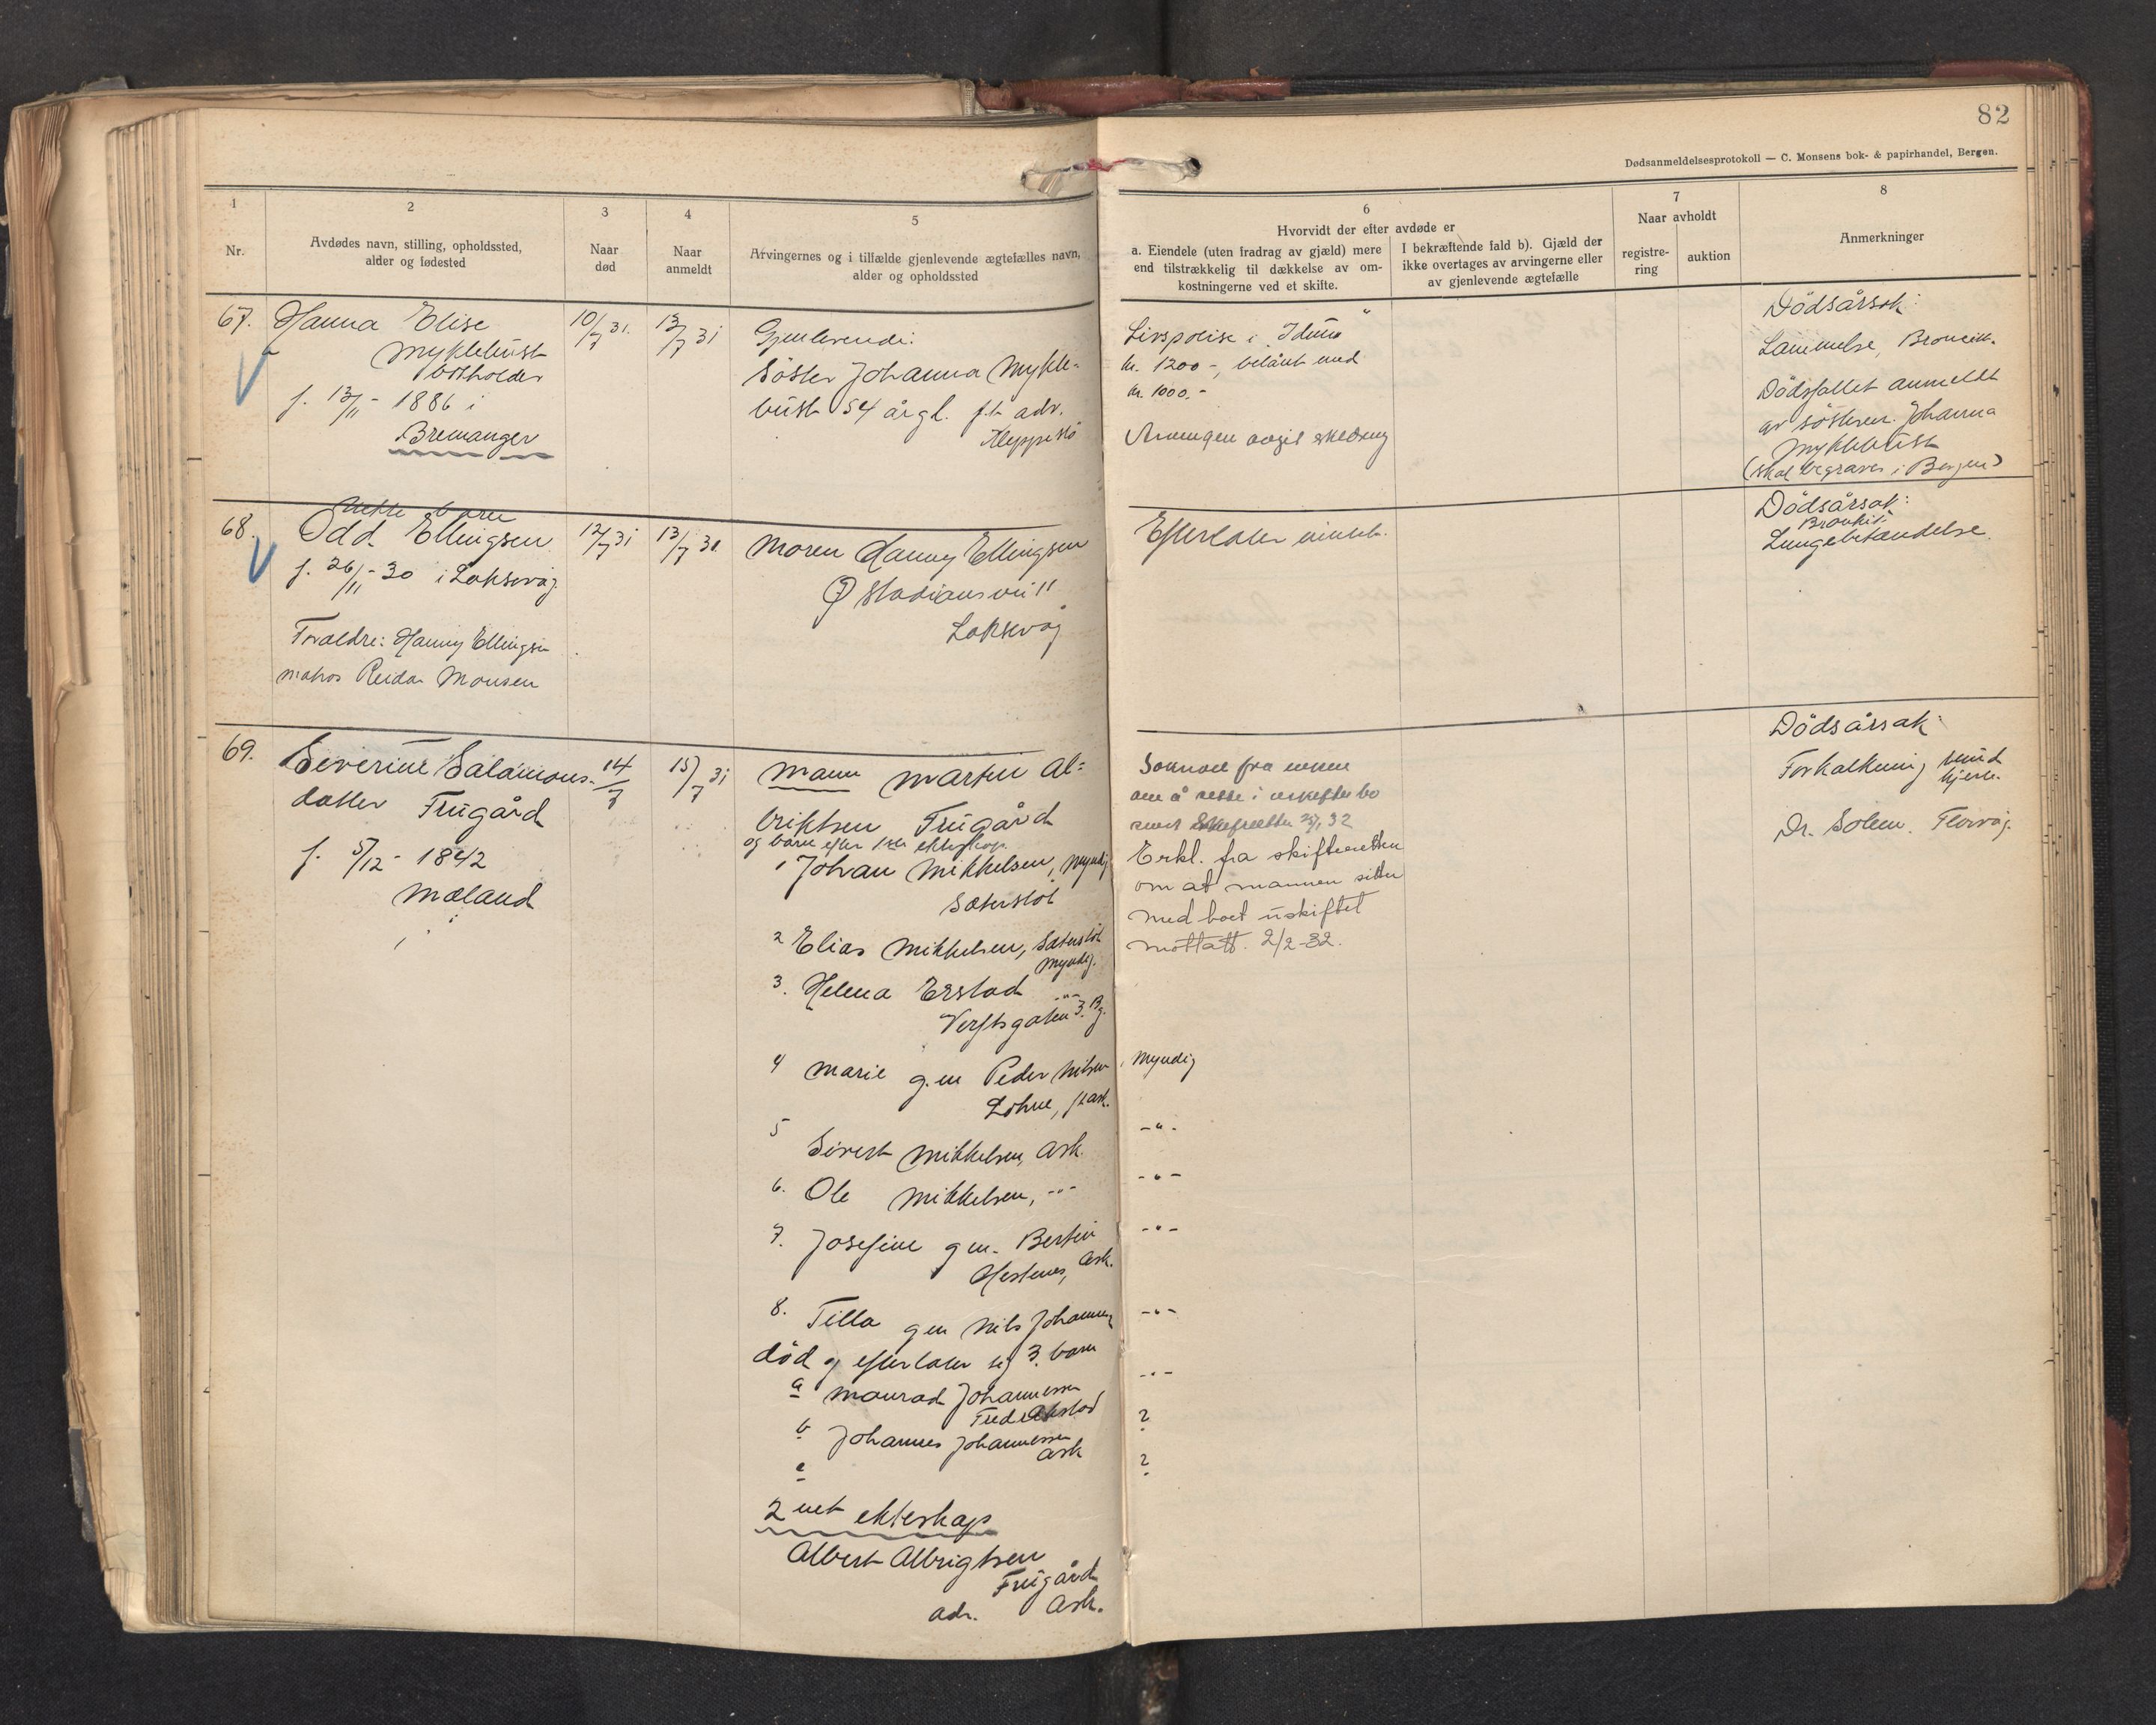 82
Dødsanmeldelsesprotokoll — C. Monsens bok- & papirhandel, Bergen.
1
Nr.
2
Avdødes navn, stilling, opholdssted,
alder og fødested
3
Naar
død
4
Naar
anmeldt
5
Arvingernes og i tilfælde gjenlevende ægtefælles navn,
alder og opholdssted
6
Hvorvidt der efter avdøde er
a. Eiendele (uten fradrag av gjæld) mere
end tilstrækkelig til dækkelse av om-
kostningerne ved et skifte.
I bekræftende fald b). Gjæld der
ikke overtages av arvingerne eller
av gjenlevende ægtefælle
7
Naar avholdt
registre-
ring
auktion
8
Anmerkninger
67.
Hanna Elise
Myklebust
f. 13/11 - 1886 i
Bremanger
10/7 31.
13/7 31
Gjenlevende:
Søster Johanna Mykle-
bust 54 år gl. f.t. adr.
Kleppestø
Livspolise i "Iduna"
kr. 1200 -, belånt med
kr. 1000.-
Dödsårsak:
Lammelse,
Dödsfallet anmeldt
av søsteren Johanna
Myklebust
(skal begraves i Bergen)
68.
Uekte barn
Odd Ellingsen
f. 26/11 - 30 i Laksevåg
Foraldre: Hanny Ellingsen
matros Reidar Monsen
12/7 31
13/7 31.
Moren Hanny Ellingsen
Laksevåg
Efterlater intet.
Dödsårsak:
Bronkit
Lungebetændelse.
69.
Severine Salamons-
datter Frugård
f. 5/12 - 1842
Mæland
14/7
15/7 31
Mann Martin Al-
briktsen Frugård
og barn efter 1ste ekteskap
1 Johan Mikkelsen, Myndig
2 Elias Mikkelsen,
Myndig.
3. Helena Erstad -"-
Verftsgaten 3. Bg.
4 Marie g.m Peder Nilsen
Løhne, p. Ask.
5
Sivert Mikkelsen, Ask.
6. Ole Mikkelsen, -"-
7. Josefine g m. Bertin
Hestenes, Ask.
8. Tilla gm Nils Johannesen
död og efterlater sig 3. barn
a Monrad Johannessen
Fredrikstad
b Johannes Johannessen
Ask
c
2 net ekteskap
Albert Albrigtsen
Frugård
adr. Ask.
om å sitte i uskiftet bo
Erkl. fra skifteretten
om at mannen sitter
med boet uskiftet
mottatt. 2/2-32.
Myndig
-"-
-"-
-"-
-"-
-"-
?
?
Dödsårsak:
Forkalkning
hjerte.
Dr. Solem. Florvåg.